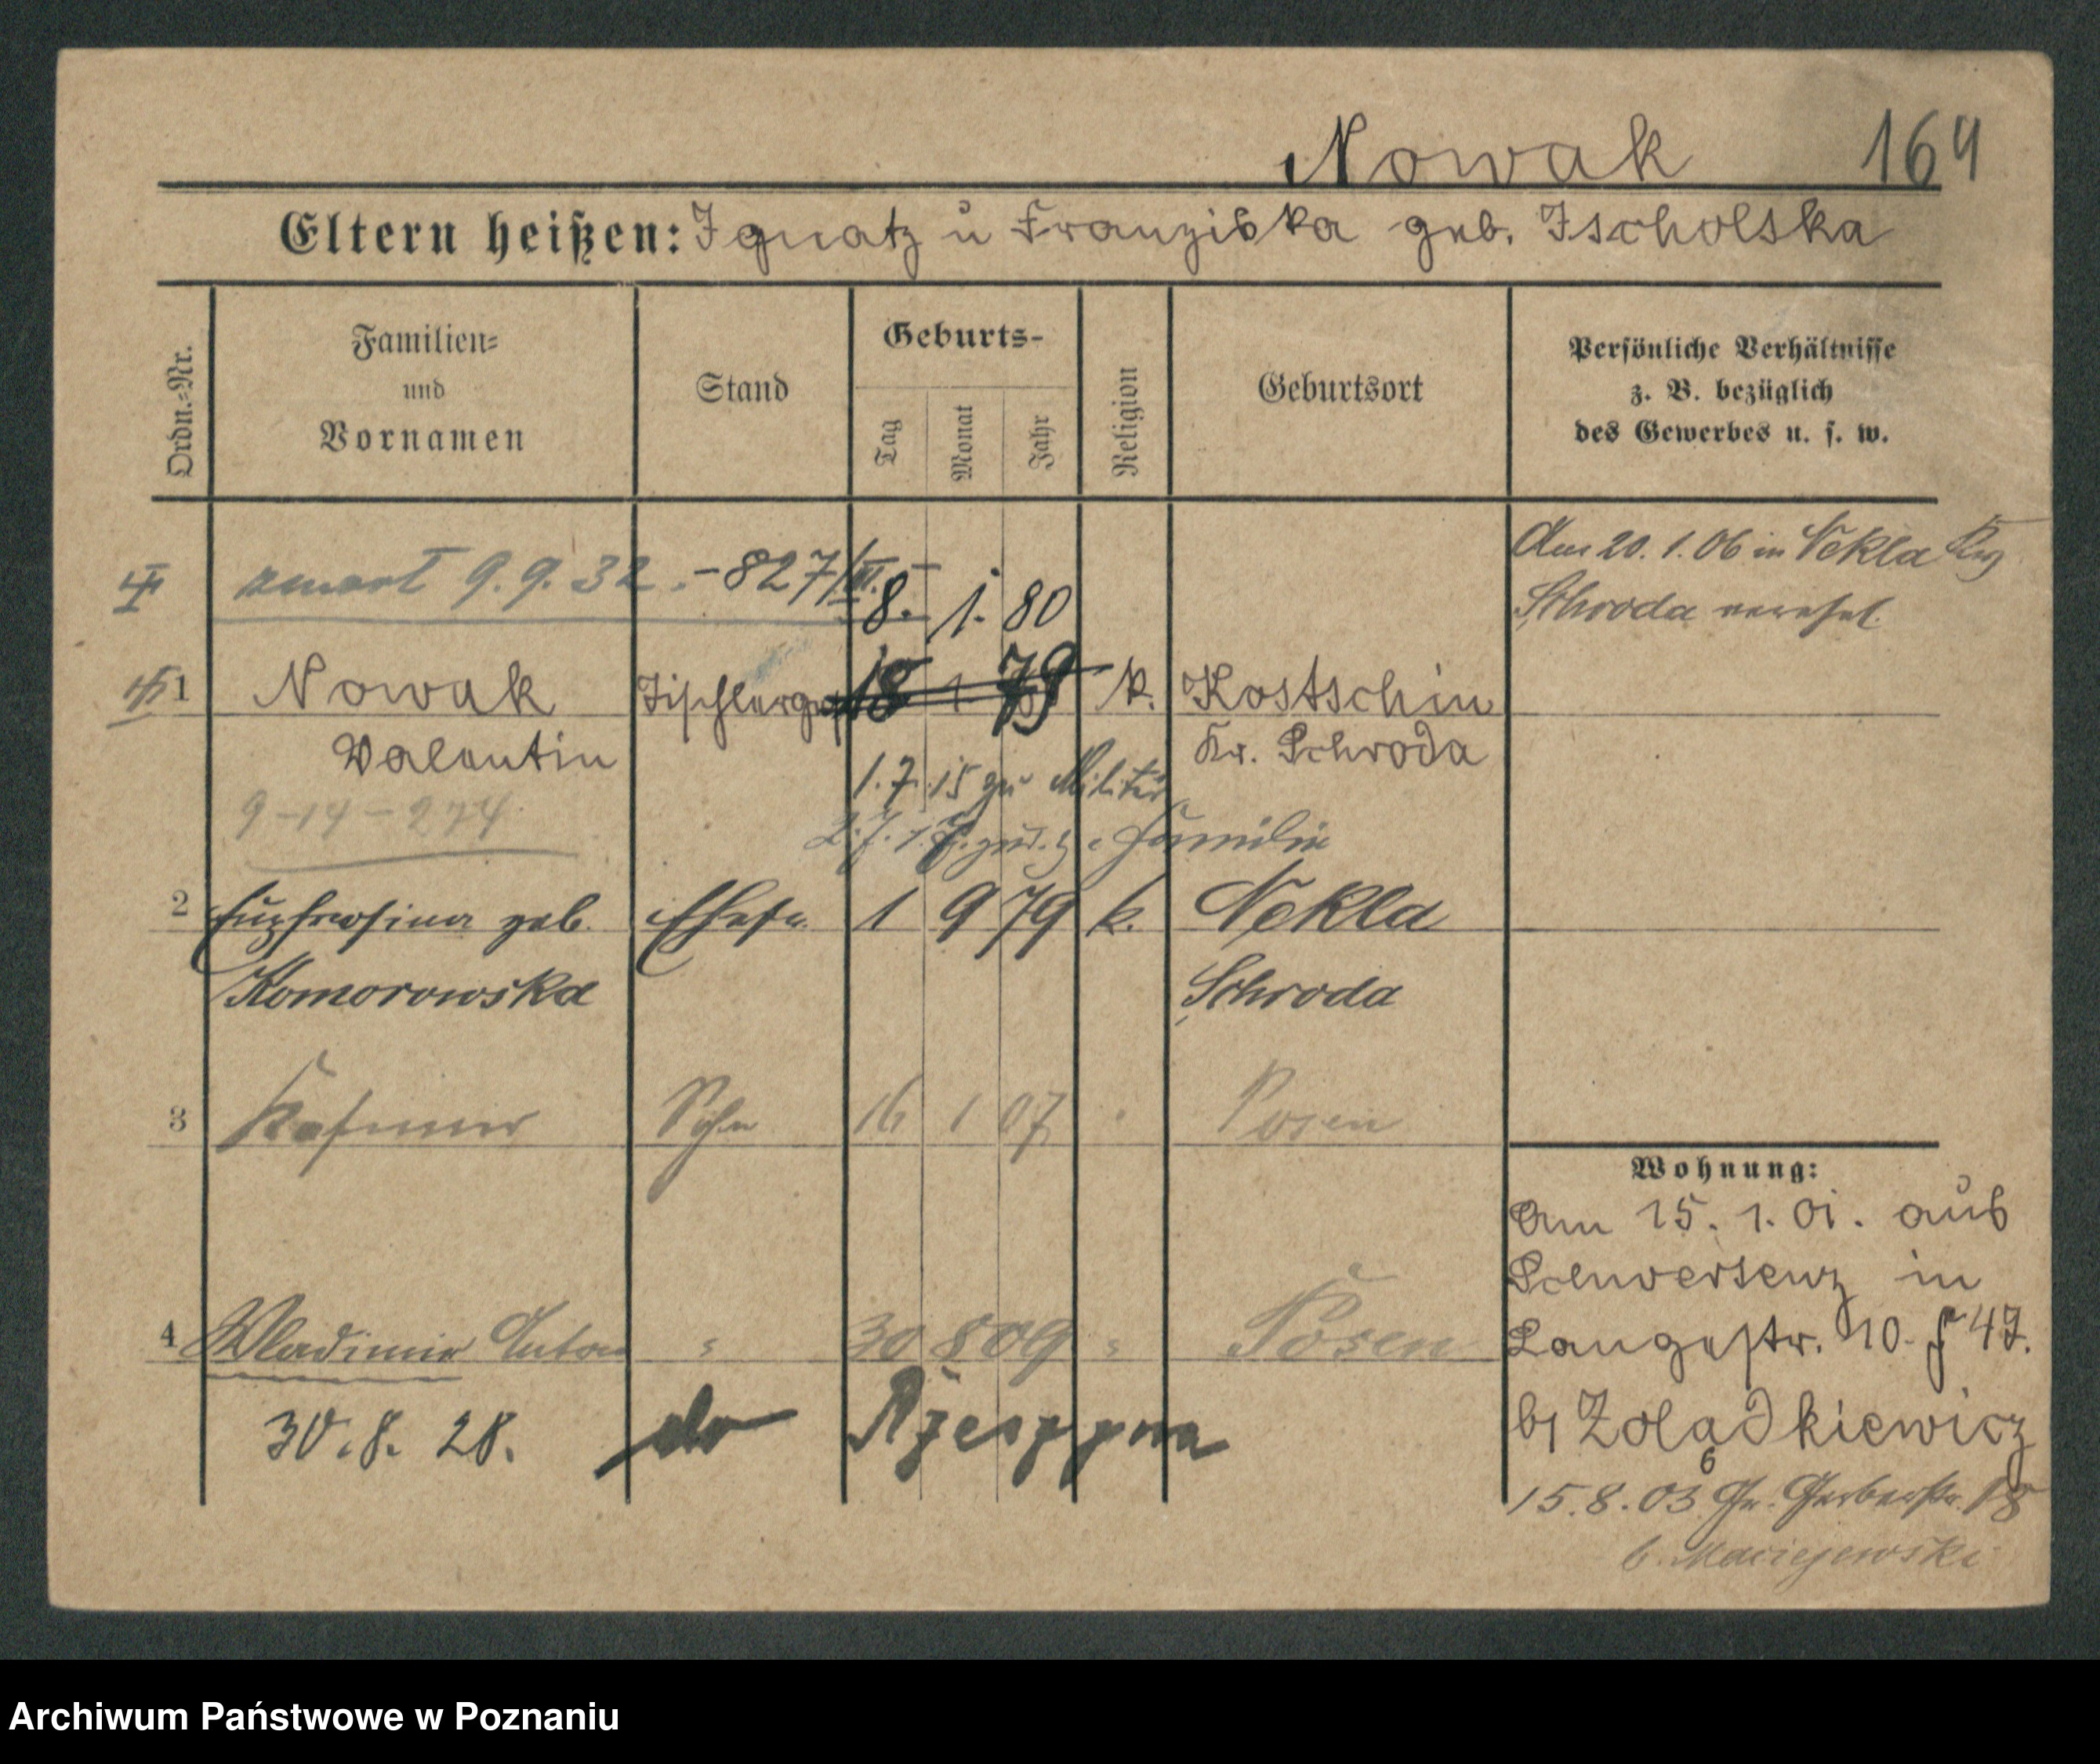 Nowak 164
Eltern heißen: Ignatz u Franziska geb. Ischolska
Ordn.-Nr.
Familien-
und
Vornamen
Stand
Geburts-
Tag
Monat
Jahr
Religion
Geburtsort
Persönliche Verhältnisse
z. B. bezüglich
des Gewerbes u. s. w.
zmarł 9.9.32. - 827/III.
8. 1. 80
Am 20.1.06 in Nekla
Schroda verehel.
1 Nowak Tischlerges 18 1 79 k. Kostschin
Valentin Kr. Schroda
9-14-274
1.7.15 zu Militär
Familie
2 Euphrosina geb. Ehefr. 1 9 79 k. Nekla
Komorowska Schroda
3 Kasimir Sohn 16 1 07 Posen
4 Wladimir Anton " 30 8 09 " Posen
30.8.28. do
Wohnung:
Am 15.1.01. aus
Schwersenz in
Langestr. 10. 47.
b/ Zoladkiewicz
15.8.03 Gr. Gerberstr. 18
b. Maciejewski
Archiwum Państwowe w Poznaniu